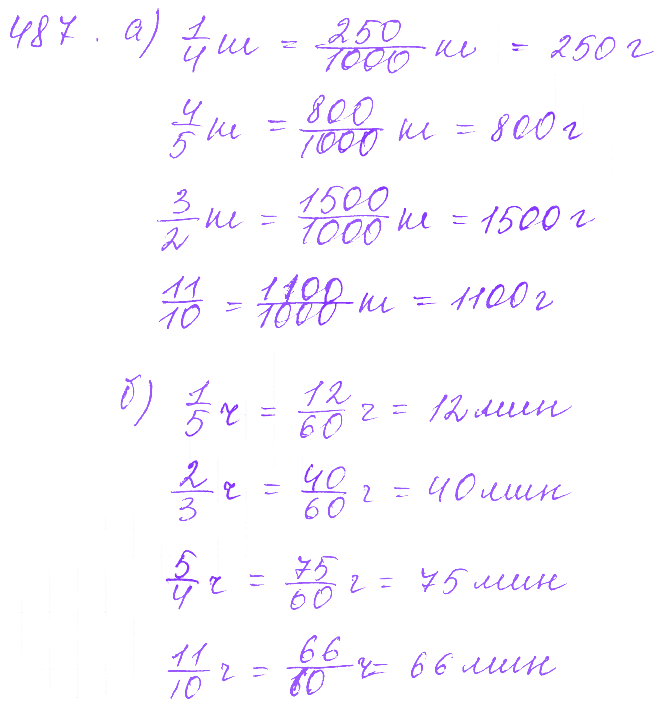 487. а) 1/4 кг = 250/1000 кг = 250 г
4/5 кг = 800/1000 кг = 800 г
3/2 кг = 1500/1000 кг = 1500 г
11/10 = 1100/1000 кг = 1100 г
б) 1/5 ч = 12/60 ч = 12 мин
2/3 ч = 40/60 ч = 40 мин
5/4 ч = 75/60 ч = 75 мин
11/10 ч = 66/60 ч = 66 мин